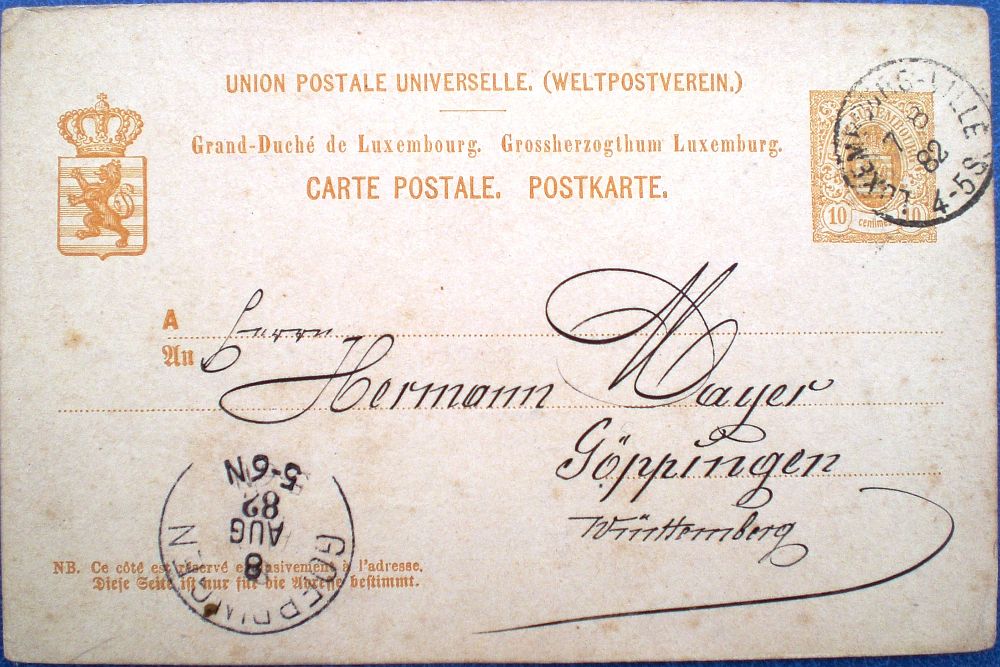 UNION POSTALE UNIVERSELLE. (WELTPOSTVEREIN.)
Grand-Duché de Luxembourg. Grossherzogthum Luxemburg.
CARTE POSTALE. POSTKARTE.
LUXEMBOURG-VILLE
8
7
82
4-5S
10 centimes 10
A
An
Herrn
Hermann Mayer
Göppingen
Württemberg
GOEPPINGEN
8
AUG
82
5-6N
NB. Ce côté est réservé exclusivement à l'adresse.
Diese Seite ist nur für die Adresse bestimmt.